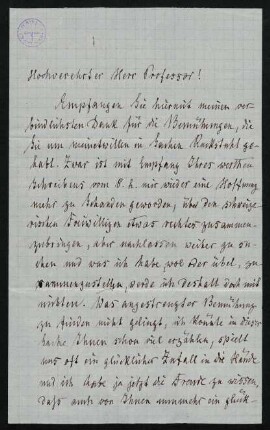 Hochverehrter Herr Professor!
Empfangen Sie hiermit meinen ver-
bindlichsten Dank für die Bemühungen, die
Sie um meinetwillen in Sachen Ruckstuhl ge-
habt. Zwar ist mit Empfang Ihres werthen
Schreibens vom 8. h. mir wieder eine Hoffnung
mehr zu Schanden geworden, über den
Freiwilligen etwas rechtes zusammen-
zubringen, aber nachlassen weiter zu su-
chen und was ich habe, wol oder übel, zu-
sammenzustellen, werde ich deshalb doch mit
nichten. Was angestrengter Bemühung
zu finden nicht gelingt, ich könnte in dieser
Sache Ihnen schon viel erzählen, spielt
uns oft ein glücklicher Zufall in die Hände
und ich habe ja jetzt die Freude zu wissen,
daß auch von Ihnen nunmehr ein glück-